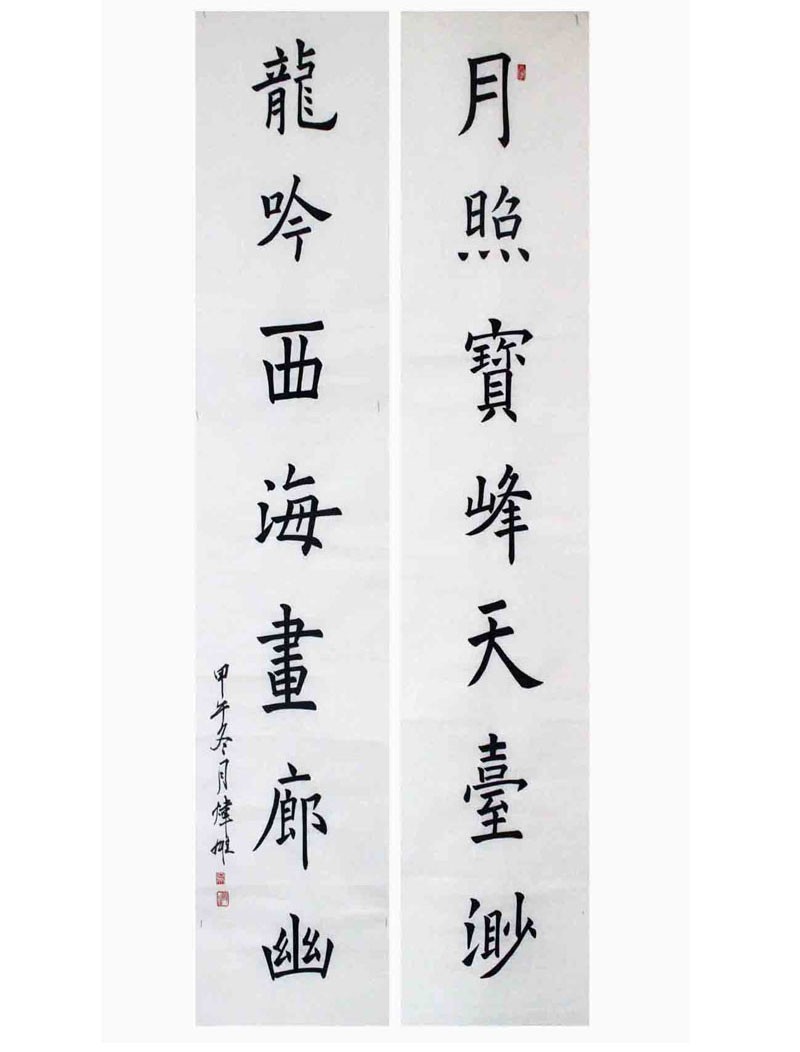 月照寶峰天臺渺
龍吟西海畫廊幽
甲午冬月煒